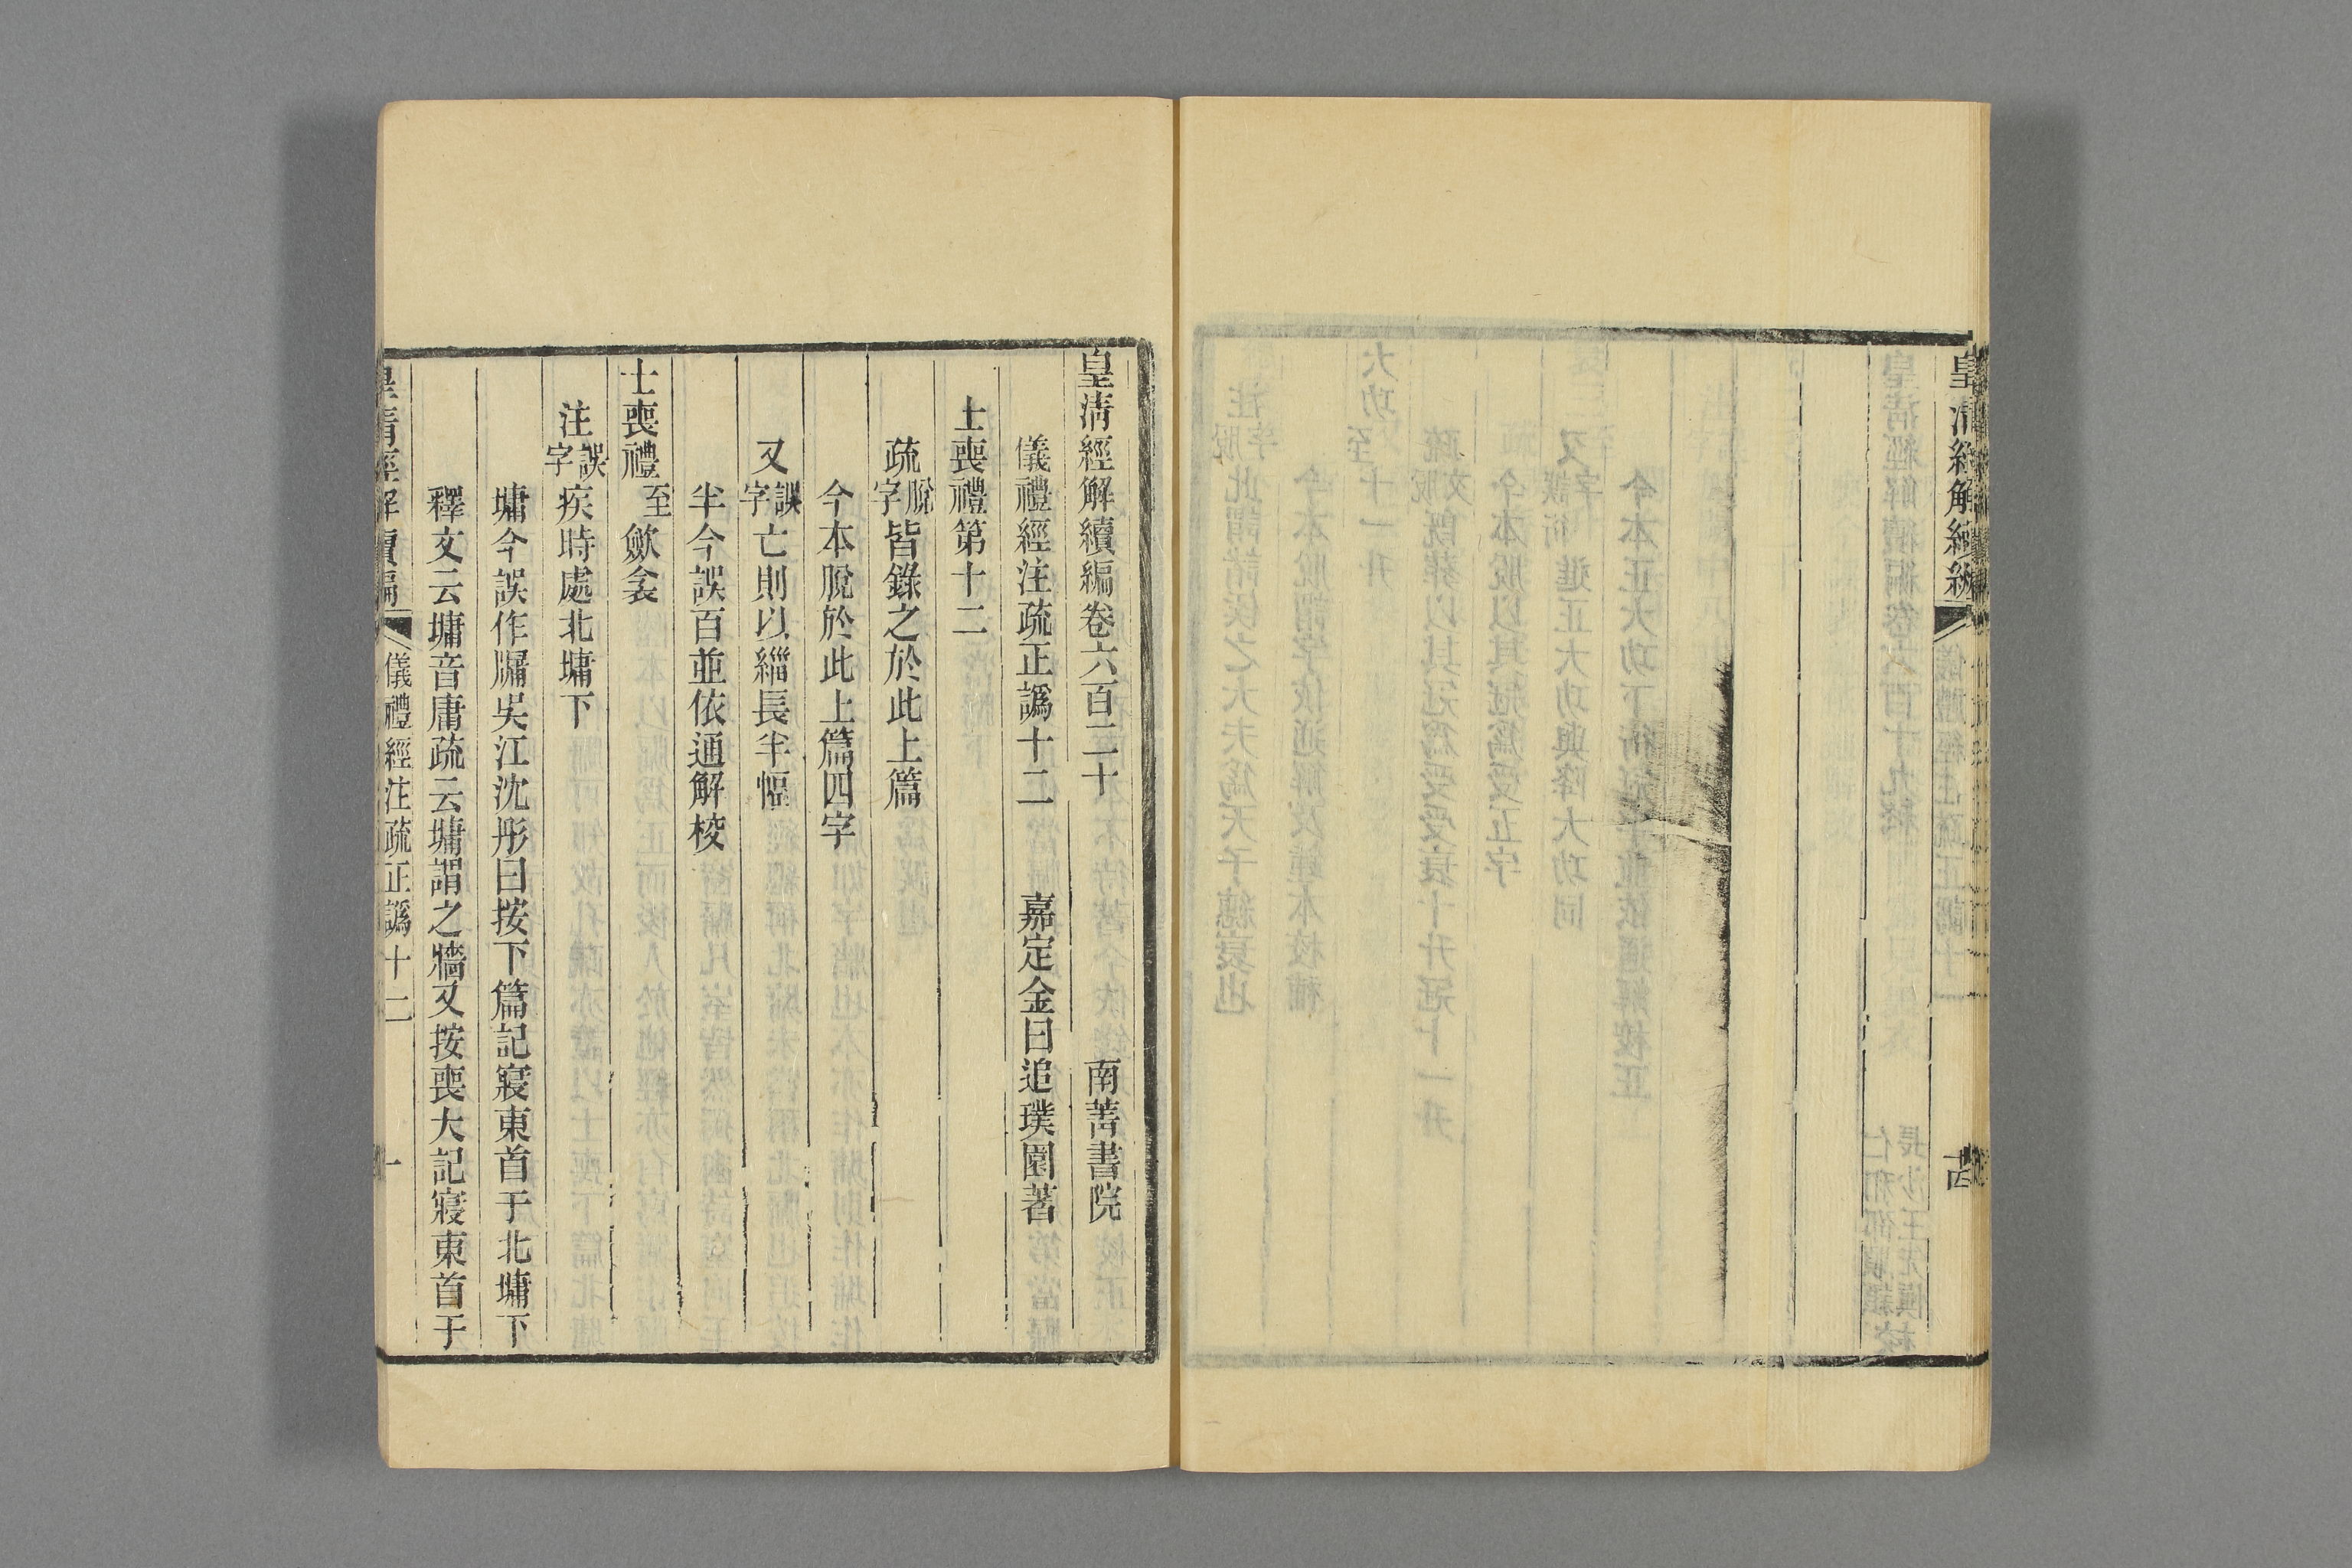 皇清經解續編
十四
皇清經解續編卷六百二十 南菁書院
儀禮經注疏正譌十二 嘉定金曰追璞園著
士喪禮第十二
疏脫字皆錄之於此上篇
今本脫於此上篇四字
又誤字亡則以緇長半幅
半今誤百並依通解校
士喪禮至斂衾
注誤字疾時處北墉下
墉今誤作牖吳江沈彤曰按下篇記寢東首于北墉下
釋文云墉音庸疏云墉謂之牆又按喪大記寢東首于
皇清經解續編 儀禮經注疏正譌十二 一